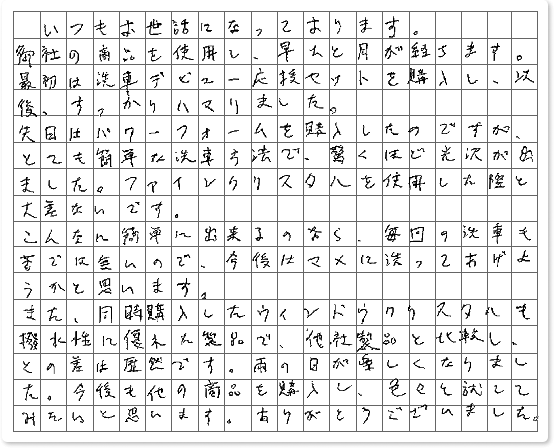 いつもお世話になっております。
御社の商品を使用し、早六ヶ月が経ちます。
最初は洗車デビュー応援セットを購入し、以
後、すっかりハマりました。
先日はパワーフォームを購入したのですが、
とても簡単な洗車方法で、驚くほど光沢が出
ました。ファインクリスタルを使用した際と
大差ないです。
こんなに簡単に出来るのなら、毎回の洗車も
苦では無いので、今後はマメに洗ってあげよ
うかと思います。
また、同時購入したウィンドウクリスタルも
撥水性に優れた製品で、他社製品と比較し、
との差は歴然です。雨の日が楽しくなりまし
た。今後も他の商品を購入し、色々と試して
みたいと思います。ありがとうございました。